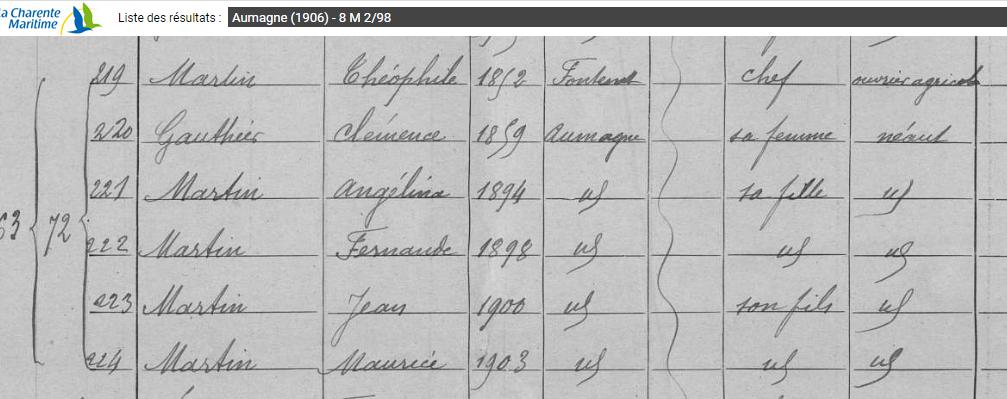 La Charente Maritime
Liste des résultats : Aumagne (1906) - 8 M 2/98
219 Martin Théophile 1852 Fontenet chef ouvrier agricole
220 Gauthier Clémence 1859 Aumagne sa femme néant
221 Martin Angélina 1894 id sa fille id
63 72 222 Martin Fernande 1898 id id id
223 Martin Jean 1900 id son fils id
224 Martin Maurice 1903 id id id